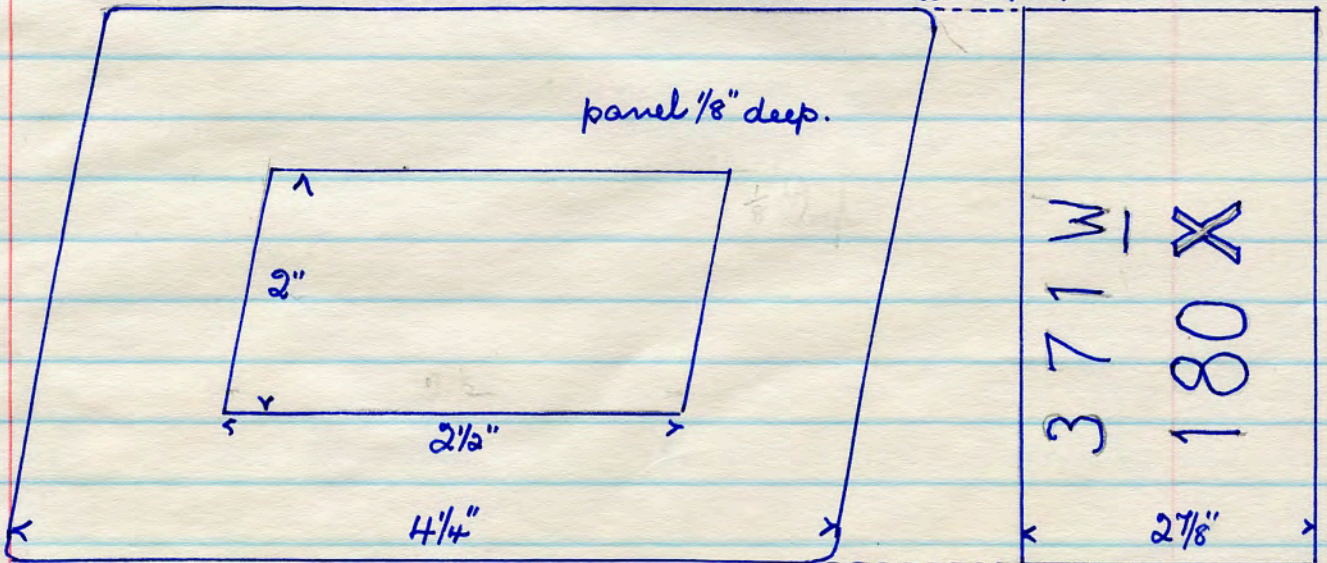 panel 1/8" deep.
2"
2 1/2"
4 1/4"
371 W
180 X
2 7/8"